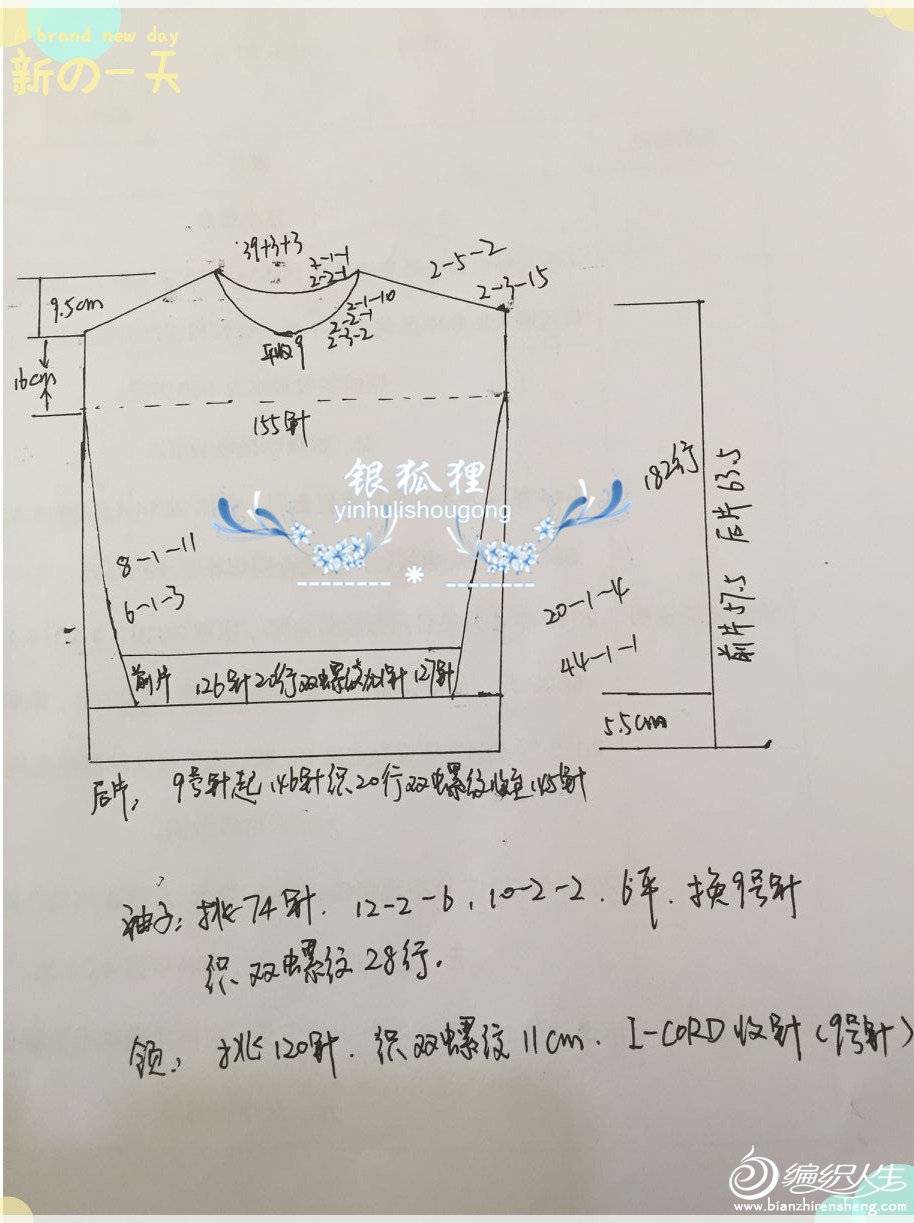 A brand new day
新の一天
39+3+3
2-1-1
2-2-1
2-5-2
2-3-15
9.5cm
2-1-10
2-2-1
2-3-2
平收9
16cm
155针
银狐狸
yinhulishougong
182行
前片57.5 后片63.5
8-1-11
6-1-3
20-1-4
44-1-1
前片 126针20行双螺纹加1针 127针
5.5cm
后片, 9号针起146针织20行双螺纹收至145针
袖子: 挑74针. 12-2-6, 10-2-2. 6平. 换9号针
织双螺纹28行.
领: 挑120针. 织双螺纹11cm. I-CORD收针(9号针)
编织人生
www.bianzhirensheng.com